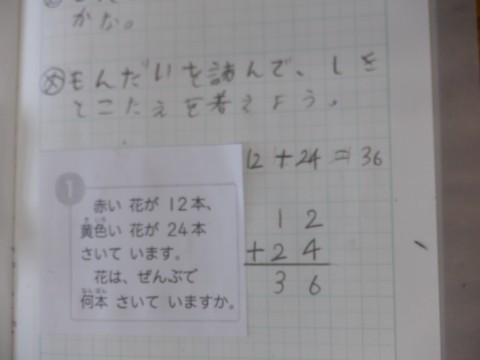 かな。
もんだいを読んで、しき
とこたえを考えよう。
12+24=36
1
赤い 花が 12本、
黄色い 花が 24本
さいて います。
花は、ぜんぶで
何本 さいて いますか。
12
+24
36